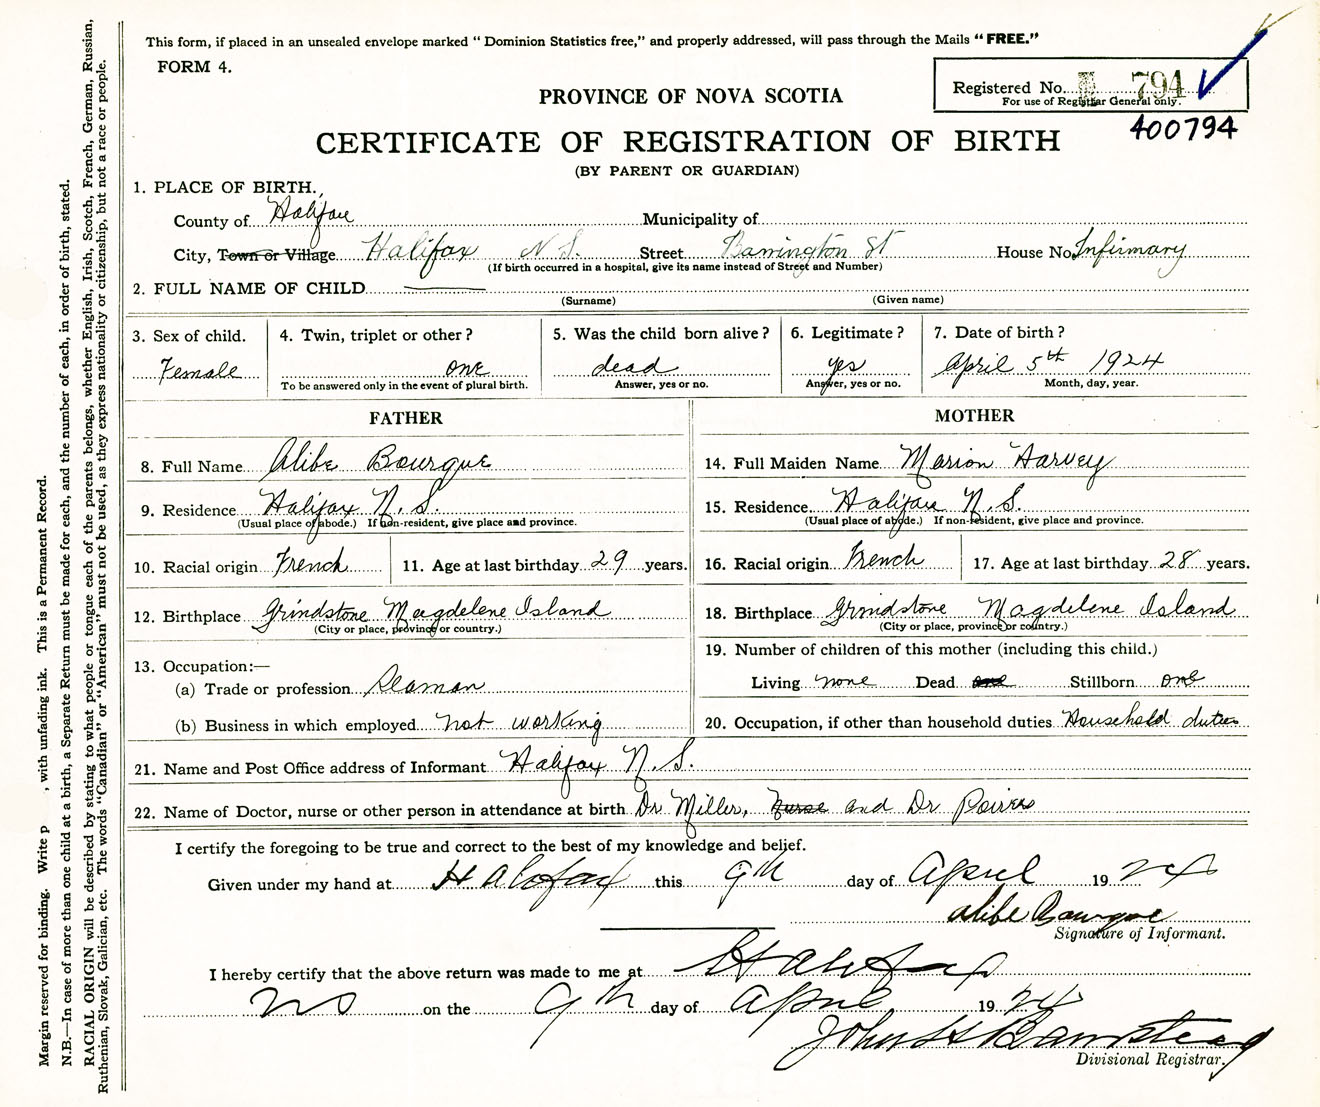 This form, if placed in an unsealed envelope marked "Dominion Statistics free," and properly addressed, will pass through the Mails "FREE."
FORM 4.
Registered No. 794
For use of Registrar General only.
400794
PROVINCE OF NOVA SCOTIA
CERTIFICATE OF REGISTRATION OF BIRTH
(BY PARENT OR GUARDIAN)
1. PLACE OF BIRTH.
County of Halifax Municipality of
City, Town or Village Halifax N.S. Street Barrington St House No. Infirmary
(If birth occurred in a hospital, give its name instead of Street and Number)
2. FULL NAME OF CHILD
(Surname) (Given name)
3. Sex of child. 4. Twin, triplet or other? 5. Was the child born alive? 6. Legitimate? 7. Date of birth?
Female one dead yes April 5th 1924
To be answered only in the event of plural birth. Answer, yes or no. Answer, yes or no. Month, day, year.
FATHER MOTHER
8. Full Name Alibe Bourque 14. Full Maiden Name Marion Harvey
9. Residence Halifax N.S. 15. Residence. Halifax N.S.
(Usual place of abode.) If non-resident, give place and province. (Usual place of abode.) If non-resident, give place and province.
10. Racial origin French 11. Age at last birthday 29 years. 16. Racial origin French 17. Age at last birthday 28 years.
12. Birthplace Grindstone Magdelene Island 18. Birthplace Grindstone Magdelene Island
(City or place, province or country.) (City or place, province or country.)
13. Occupation:— 19. Number of children of this mother (including this child.)
(a) Trade or profession Seaman Living none Dead one Stillborn one
(b) Business in which employed not working 20. Occupation, if other than household duties Household duties
21. Name and Post Office address of Informant Halifax N.S.
22. Name of Doctor, nurse or other person in attendance at birth Dr Miller, Nurse and Dr
I certify the foregoing to be true and correct to the best of my knowledge and belief.
Given under my hand at Halofax this 9th day of April 1924
Alibe Bourque
Signature of Informant.
I hereby certify that the above return was made to me at Halifax
NS on the 9th day of April 1924
John H Barnstead
Divisional Registrar.
Margin reserved for binding. Write p , with unfading ink. This is a Permanent Record.
N.B.—In case of more than one child at a birth, a Separate Return must be made for each, and the number of each, in order of birth, stated.
RACIAL ORIGIN will be described by stating to what people or tongue each of the parents belongs, whether English, Irish, Scotch, French, German, Russian,
Ruthenian, Slovak, Galician, etc. The words "Canadian" or "American" must not be used, as they express nationality or citizenship, but not a race or people.